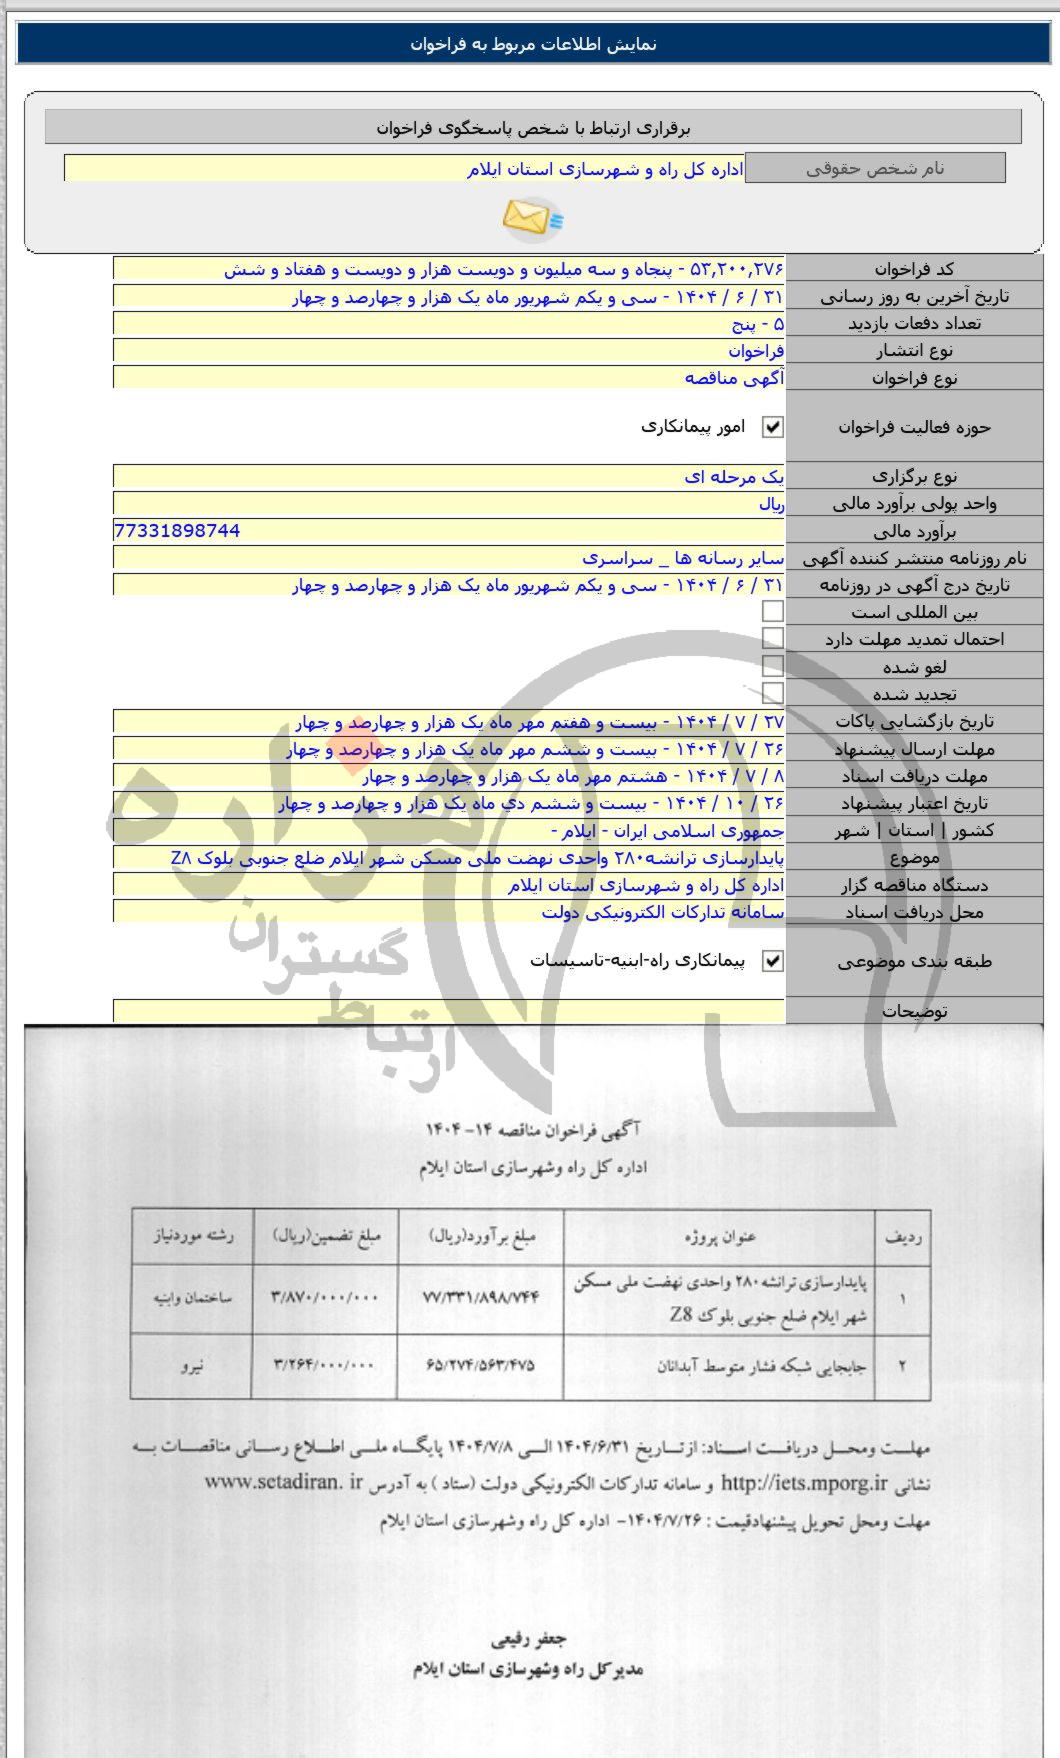 نمایش اطلاعات مربوط به فراخوان
برقراری ارتباط با شخص پاسخگوی فراخوان
نام شخص حقوقی اداره کل راه و شهرسازی استان ایلام
کد فراخوان ۵۳,۲۰۰,۲۷۶ - پنجاه و سه میلیون و دویست هزار و دویست و هفتاد و شش
تاریخ آخرین به روز رسانی ۳۱ / ۶ / ۱۴۰۴ - سی و یکم شهریور ماه یک هزار و چهارصد و چهار
تعداد دفعات بازدید ۵ - پنج
نوع انتشار فراخوان
نوع فراخوان آگهی مناقصه
حوزه فعالیت فراخوان امور پیمانکاری
نوع برگزاری یک مرحله ای
واحد پولی برآورد مالی ریال
برآورد مالی 77331898744
نام روزنامه منتشر کننده آگهی سایر رسانه ها _ سراسری
تاریخ درج آگهی در روزنامه ۳۱ / ۶ / ۱۴۰۴ - سی و یکم شهریور ماه یک هزار و چهارصد و چهار
بین المللی است
احتمال تمدید مهلت دارد
لغو شده
تجدید شده
تاریخ بازگشایی پاکات ۲۷ / ۷ / ۱۴۰۴ - بیست و هفتم مهر ماه یک هزار و چهارصد و چهار
مهلت ارسال پیشنهاد ۲۶ / ۷ / ۱۴۰۴ - بیست و ششم مهر ماه یک هزار و چهارصد و چهار
مهلت دریافت اسناد ۸ / ۷ / ۱۴۰۴ - هشتم مهر ماه یک هزار و چهارصد و چهار
تاریخ اعتبار پیشنهاد ۲۶ / ۱۰ / ۱۴۰۴ - بیست و ششم دي ماه یک هزار و چهارصد و چهار
کشور | استان | شهر جمهوری اسلامی ایران - ایلام -
موضوع پایدارسازی ترانشه۲۸۰ واحدی نهضت ملی مسکن شهر ایلام ضلع جنوبی بلوک Z۸
دستگاه مناقصه گزار اداره کل راه و شهرسازی استان ایلام
محل دریافت اسناد سامانه تدارکات الکترونیکی دولت
طبقه بندی موضوعی پیمانکاری راه-ابنیه-تاسیسات
توضیحات
هزاره
گستران
ارتباط
آگهی فراخوان مناقصه ۱۴- ۱۴۰۴
اداره کل راه وشهرسازی استان ایلام
ردیف عنوان پروژه مبلغ برآورد(ریال) مبلغ تضمین(ریال) رشته موردنیاز
۱ پایدارسازی ترانشه۲۸۰ واحدی نهضت ملی مسکن شهر ایلام ضلع جنوبی بلوک Z8 ۷۷/۳۳۱/۸۹۸/۷۴۴ ۳/۸۷۰/۰۰۰/۰۰۰ ساختمان وابنیه
۲ جابجایی شبکه فشار متوسط آبدانان ۶۵/۲۷۴/۵۶۳/۴۷۵ ۳/۲۶۴/۰۰۰/۰۰۰ نیرو
مهلت ومحل دریافت اسناد: ازتاریخ ۱۴۰۴/۶/۳۱ الی ۱۴۰۴/۷/۸ پایگاه ملی اطلاع رسانی مناقصات به
نشانی http://iets.mporg.ir و سامانه تدارکات الکترونیکی دولت (ستاد ) به آدرس www.setadiran. ir
مهلت ومحل تحویل پیشنهادقیمت : ۱۴۰۴/۷/۲۶- اداره کل راه وشهرسازی استان ایلام
جعفر رفیعی
مدیرکل راه وشهرسازی استان ایلام